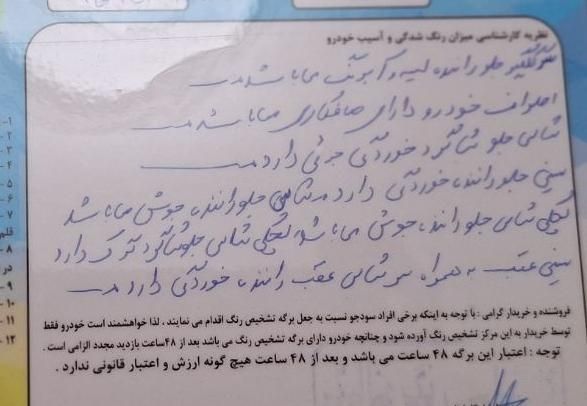 نظریه کارشناسی میزان رنگ شدگی و آسیب خودرو
گلگیر جلو راننده لیسه و کربونت می باشد
اطراف خودرو دارای صافکاری می باشد
شاسی جلو شاگرد خوردگی جزئی دارد
سینی جلو راننده خوردگی دارد سرشاسی جلو راننده جوش می باشد
گلگی شاسی جلو راننده جوش می باشد گلگی شاسی جلو شاگرد ترک دارد
سینی عقب به همراه سرشاسی عقب راننده خوردگی دارد
فروشنده و خریدار گرامی : با توجه به اینکه برخی افراد سودجو نسبت به جعل برگه تشخیص رنگ اقدام می نمایند ، لذا خواهشمند است خودرو فقط
توسط خریدار به این مرکز تشخیص رنگ آورده شود و چنانچه خودرو دارای برگه تشخیص رنگ می باشد بعد از ۴۸ ساعت بازدید مجدد الزامی است .
توجه : اعتبار این برگه ۴۸ ساعت می باشد و بعد از ۴۸ ساعت هیچ گونه ارزش و اعتبار قانونی ندارد .
-۱
-۲
-۳
-۴
-۵
-۶
-۷
قلم
-۸
در
-۹
-۱۰
-۱۱
-۱۲